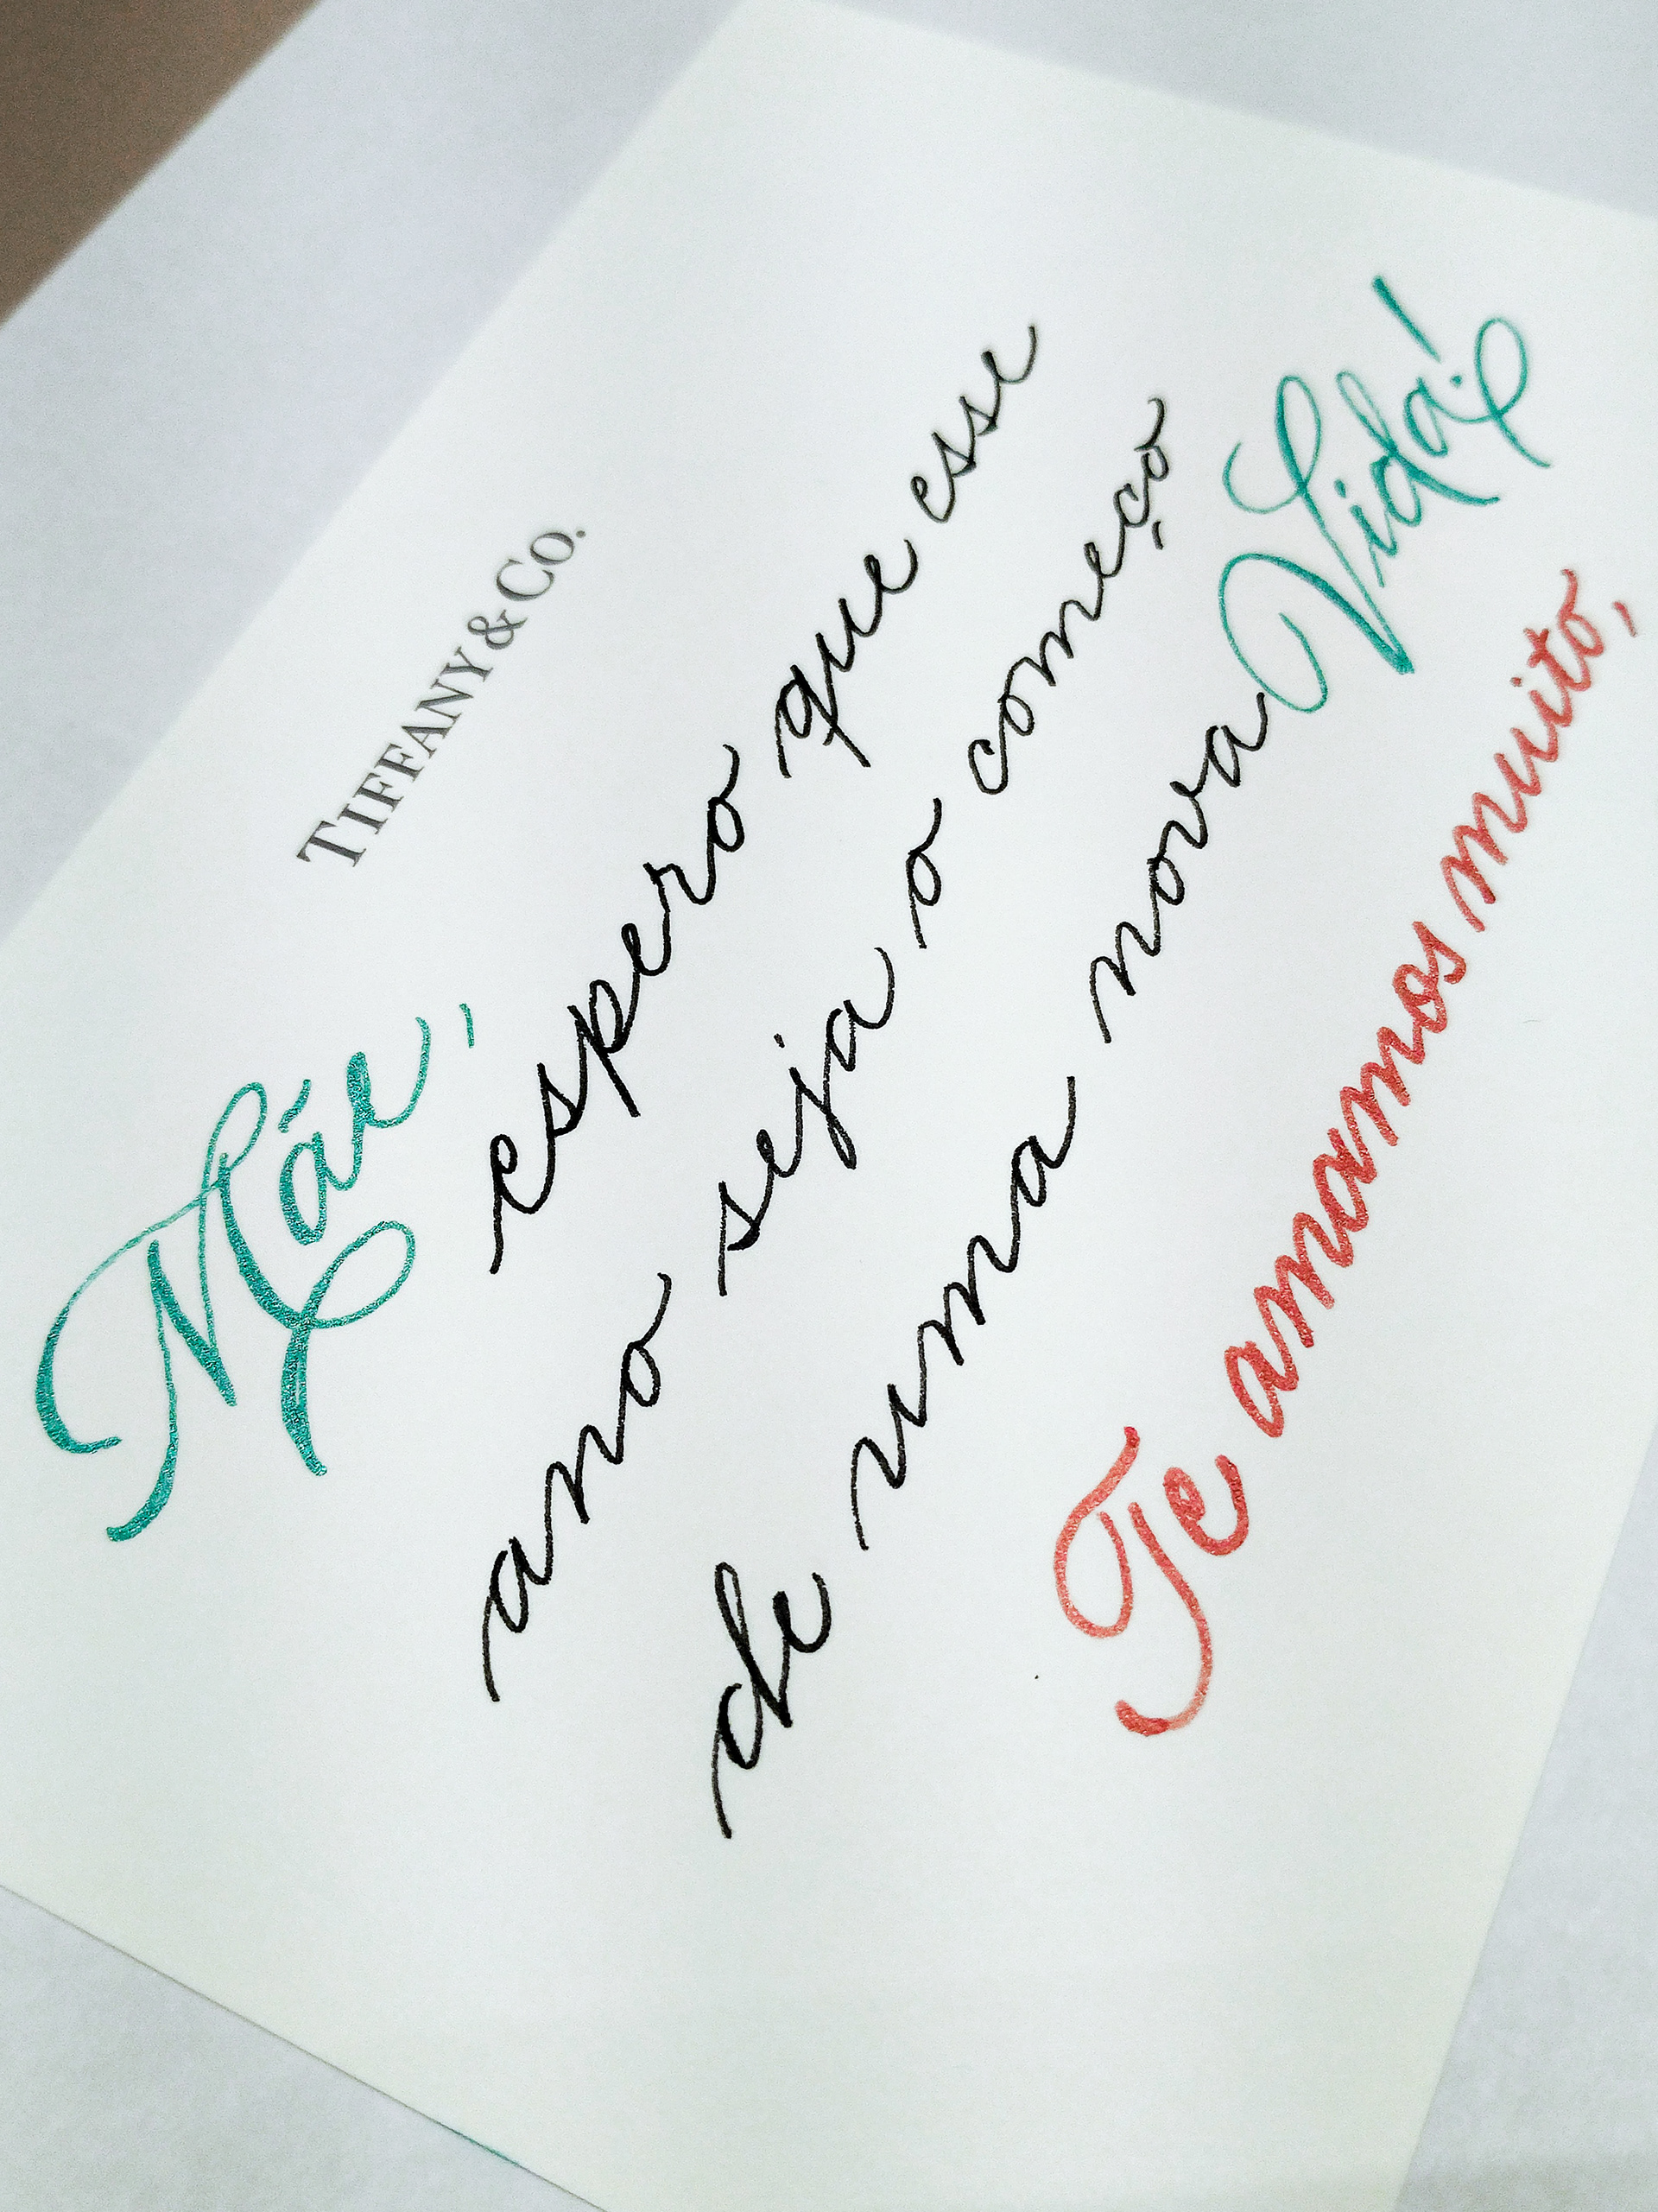 TIFFANY & CO.
Mãe,
espero que esse
ano seja o começo
de uma nova Vida!
Te amamos muito,